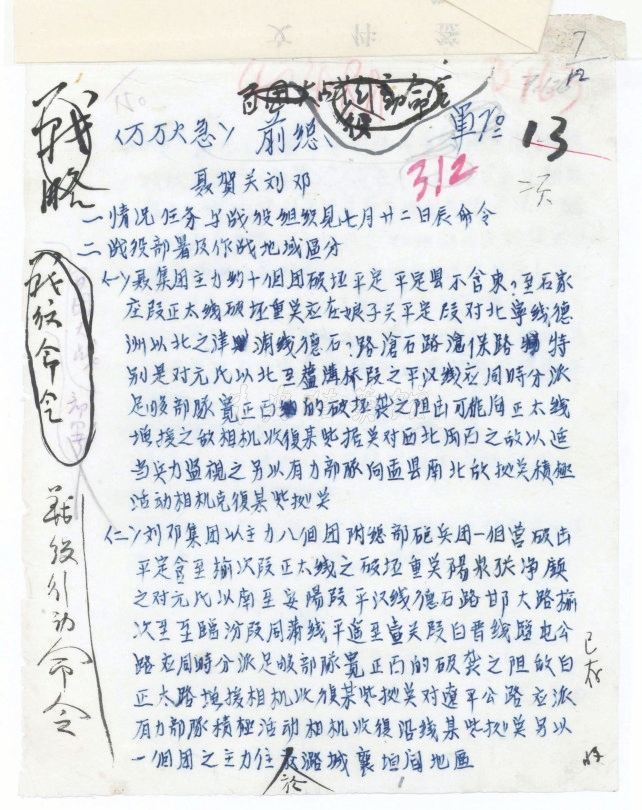 7/12
百团大战行动命令
〈万万火急〉 前总、 军 13
312
聂贺关刘邓
一情况任务与战役组织见七月廿二日辰命令
二战役部署及作战地域区分
㈠聂集团主力约十个团破坏平定 平定县不含东?至石家
庄段正太线破坏重点应在娘子关平定段对北宁线德
州以北之津浦线德石?路沧石路沧保路 特
别是对元氏以北至芦沟桥段之平汉线应同時分派
足够部队宽正面的破坏袭之阻击可能向正太线
增援之敌相机收復某些据点对西北向西之敌以适
当兵力监视之另以有力部队向盂县南北敌拠点積極
活动相机克復某些拠点
㈡刘邓集团以主力八個团附总部砲兵团一個营破击
平定含至榆次段正太线之破坏重点陽泉张净镇
之对元氏以南至安陽段平汉线德石路邯大路榆
次至至臨汾段同蒲线平遥至壶关段白晋线臨屯公
路应同時分派足够部队宽正面的破袭之阻敌向
正太路增援相机收復某些拠点对遼平公路应派
有力部队積極活动相机收復沿线某些拠点另以
一個团之主力位於潞城襄垣间地區
战略
战役命令
部署
战役行动命令
已存